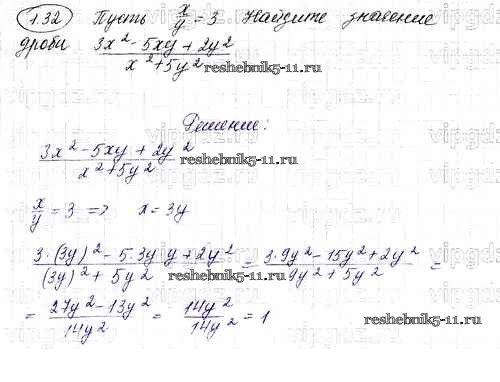 1.32 Пусть x/y = 3 Найдите значение
дроби (3x² - 5xy + 2y²)/(x² + 5y²)
reshebnik5-11.ru
Решение:
(3x² - 5xy + 2y²)/(x² + 5y²)
reshebnik5-11.ru
x/y = 3 => x = 3y
(3·(3y)² - 5·3y y + 2y²)/((3y)² + 5y²) = (3·9y² - 15y² + 2y²)/(9y² + 5y²) =
reshebnik5-11.ru
= (27y² - 13y²)/(14y²) = 14y²/14y² = 1
reshebnik5-11.ru